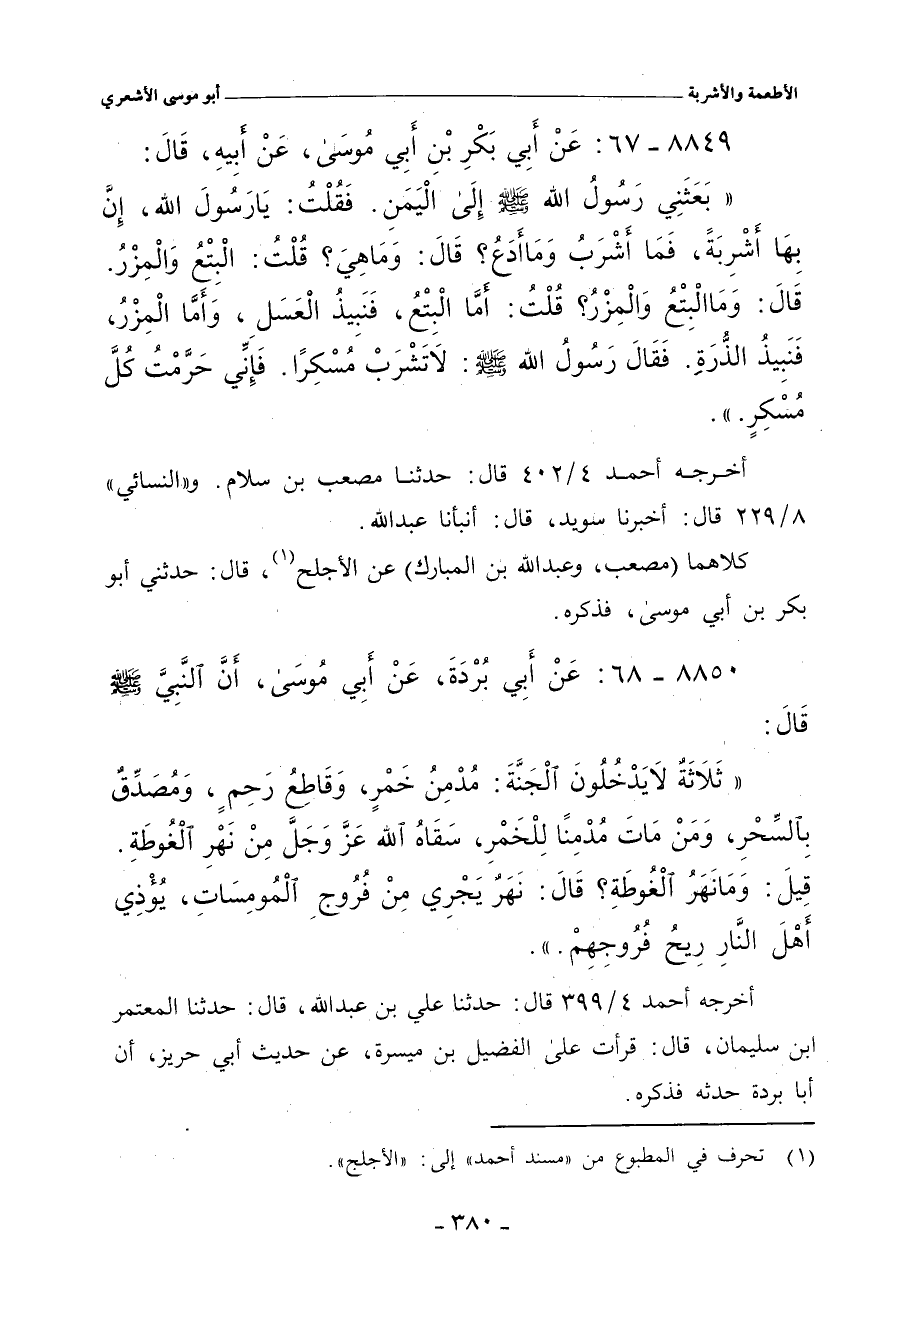 الأطعمة والأشربة ــــــ أبو موسى الأشعري
٨٨٤٩ ـ ٦٧: عَنْ أَبِي بَكْرِ بْنِ أَبِي مُوسَىٰ، عَنْ أَبِيهِ، قَالَ:
« بَعَثَنِي رَسُولُ الله ﷺ إِلَىٰ الْيَمَنِ. فَقُلْتُ: يَارَسُولَ الله، إِنَّ
بِهَا أَشْرِبَةً، فَمَا أَشْرَبُ وَمَاأَدَعُ؟ قَالَ: وَمَاهِيَ؟ قُلْتُ: الْبِتْعُ وَالْمِزْرُ.
قَالَ: وَمَاالْبِتْعُ وَالْمِزْرُ؟ قُلْتُ: أَمَّا الْبِتْعُ، فَنَبِيذُ الْعَسَلِ، وَأَمَّا الْمِزْرُ،
فَنَبِيذُ الذُّرَةِ. فَقَالَ رَسُولُ الله ﷺ: لَاتَشْرَبْ مُسْكِرًا. فَإِنِّي حَرَّمْتُ كُلَّ
مُسْكِرٍ.».
أخرجه أحمد ٤٠٢/٤ قال: حدثنا مصعب بن سلام. و«النسائي»
٢٢٩/٨ قال: أخبرنا سويد، قال: أنبأنا عبدالله.
كلاهما (مصعب، وعبدالله بن المبارك) عن الأجلح(١)، قال: حدثني أبو
بكر بن أبي موسىٰ، فذكره.
٨٨٥٠ ـ ٦٨: عَنْ أَبِي بُرْدَةَ، عَنْ أَبِي مُوسَىٰ، أَنَّ ٱلنَّبِيَّ ﷺ
قَالَ:
« ثَلَاثَةٌ لَايَدْخُلُونَ ٱلْجَنَّةَ: مُدْمِنُ خَمْرٍ، وَقَاطِعُ رَحِمٍ، وَمُصَدِّقٌ
بِٱلسِّحْرِ، وَمَنْ مَاتَ مُدْمِنًا لِلْخَمْرِ، سَقَاهُ ٱلله عَزَّ وَجَلَّ مِنْ نَهْرِ ٱلْغُوطَةِ.
قِيلَ: وَمَانَهَرُ ٱلْغُوطَةِ؟ قَالَ: نَهَرٌ يَجْرِي مِنْ فُرُوجِ ٱلْمُومِسَاتِ، يُؤْذِي
أَهْلَ النَّارِ رِيحُ فُرُوجِهِمْ.».
أخرجه أحمد ٣٩٩/٤ قال: حدثنا علي بن عبدالله، قال: حدثنا المعتمر
ابن سليمان، قال: قرأت علىٰ الفضيل بن ميسرة، عن حديث أبي حريز، أن
أبا بردة حدثه فذكره.
(١) تحرف في المطبوع من «مسند أحمد» إلى: «الأجلج».
ـ ٣٨٠ ـ